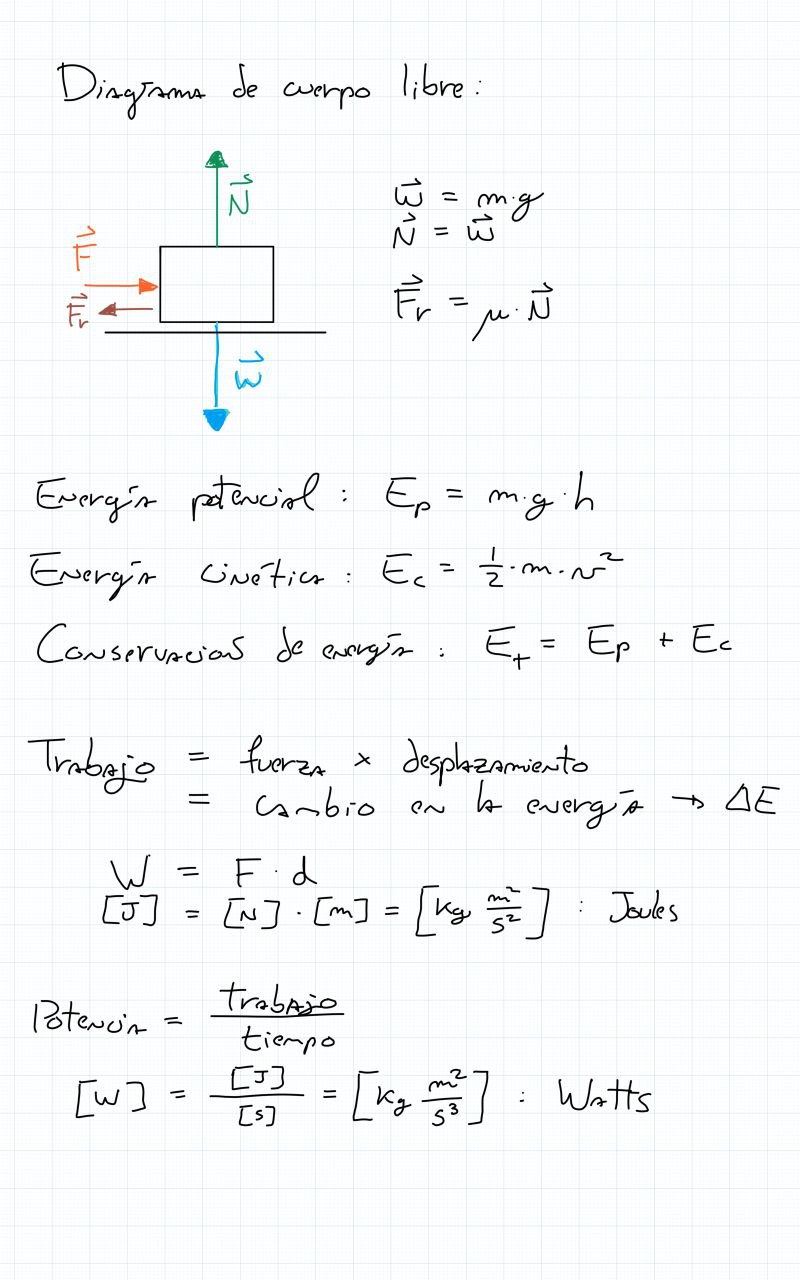 Diagrama de cuerpo libre:
N⃗
F⃗
F⃗r
w⃗
w⃗ = m·g
N⃗ = w⃗
F⃗r = μ·N⃗
Energía potencial : Ep = m·g·h
Energía cinética : Ec = 1/2·m·v²
Conservacion de energía : Et = Ep + Ec
Trabajo = fuerza × desplazamiento
= cambio en la energía → ΔE
W = F · d
[J] = [N] · [m] = [kg m²/s²] : Joules
Potencia = trabajo/tiempo
[W] = [J]/[s] = [kg m²/s³] : Watts